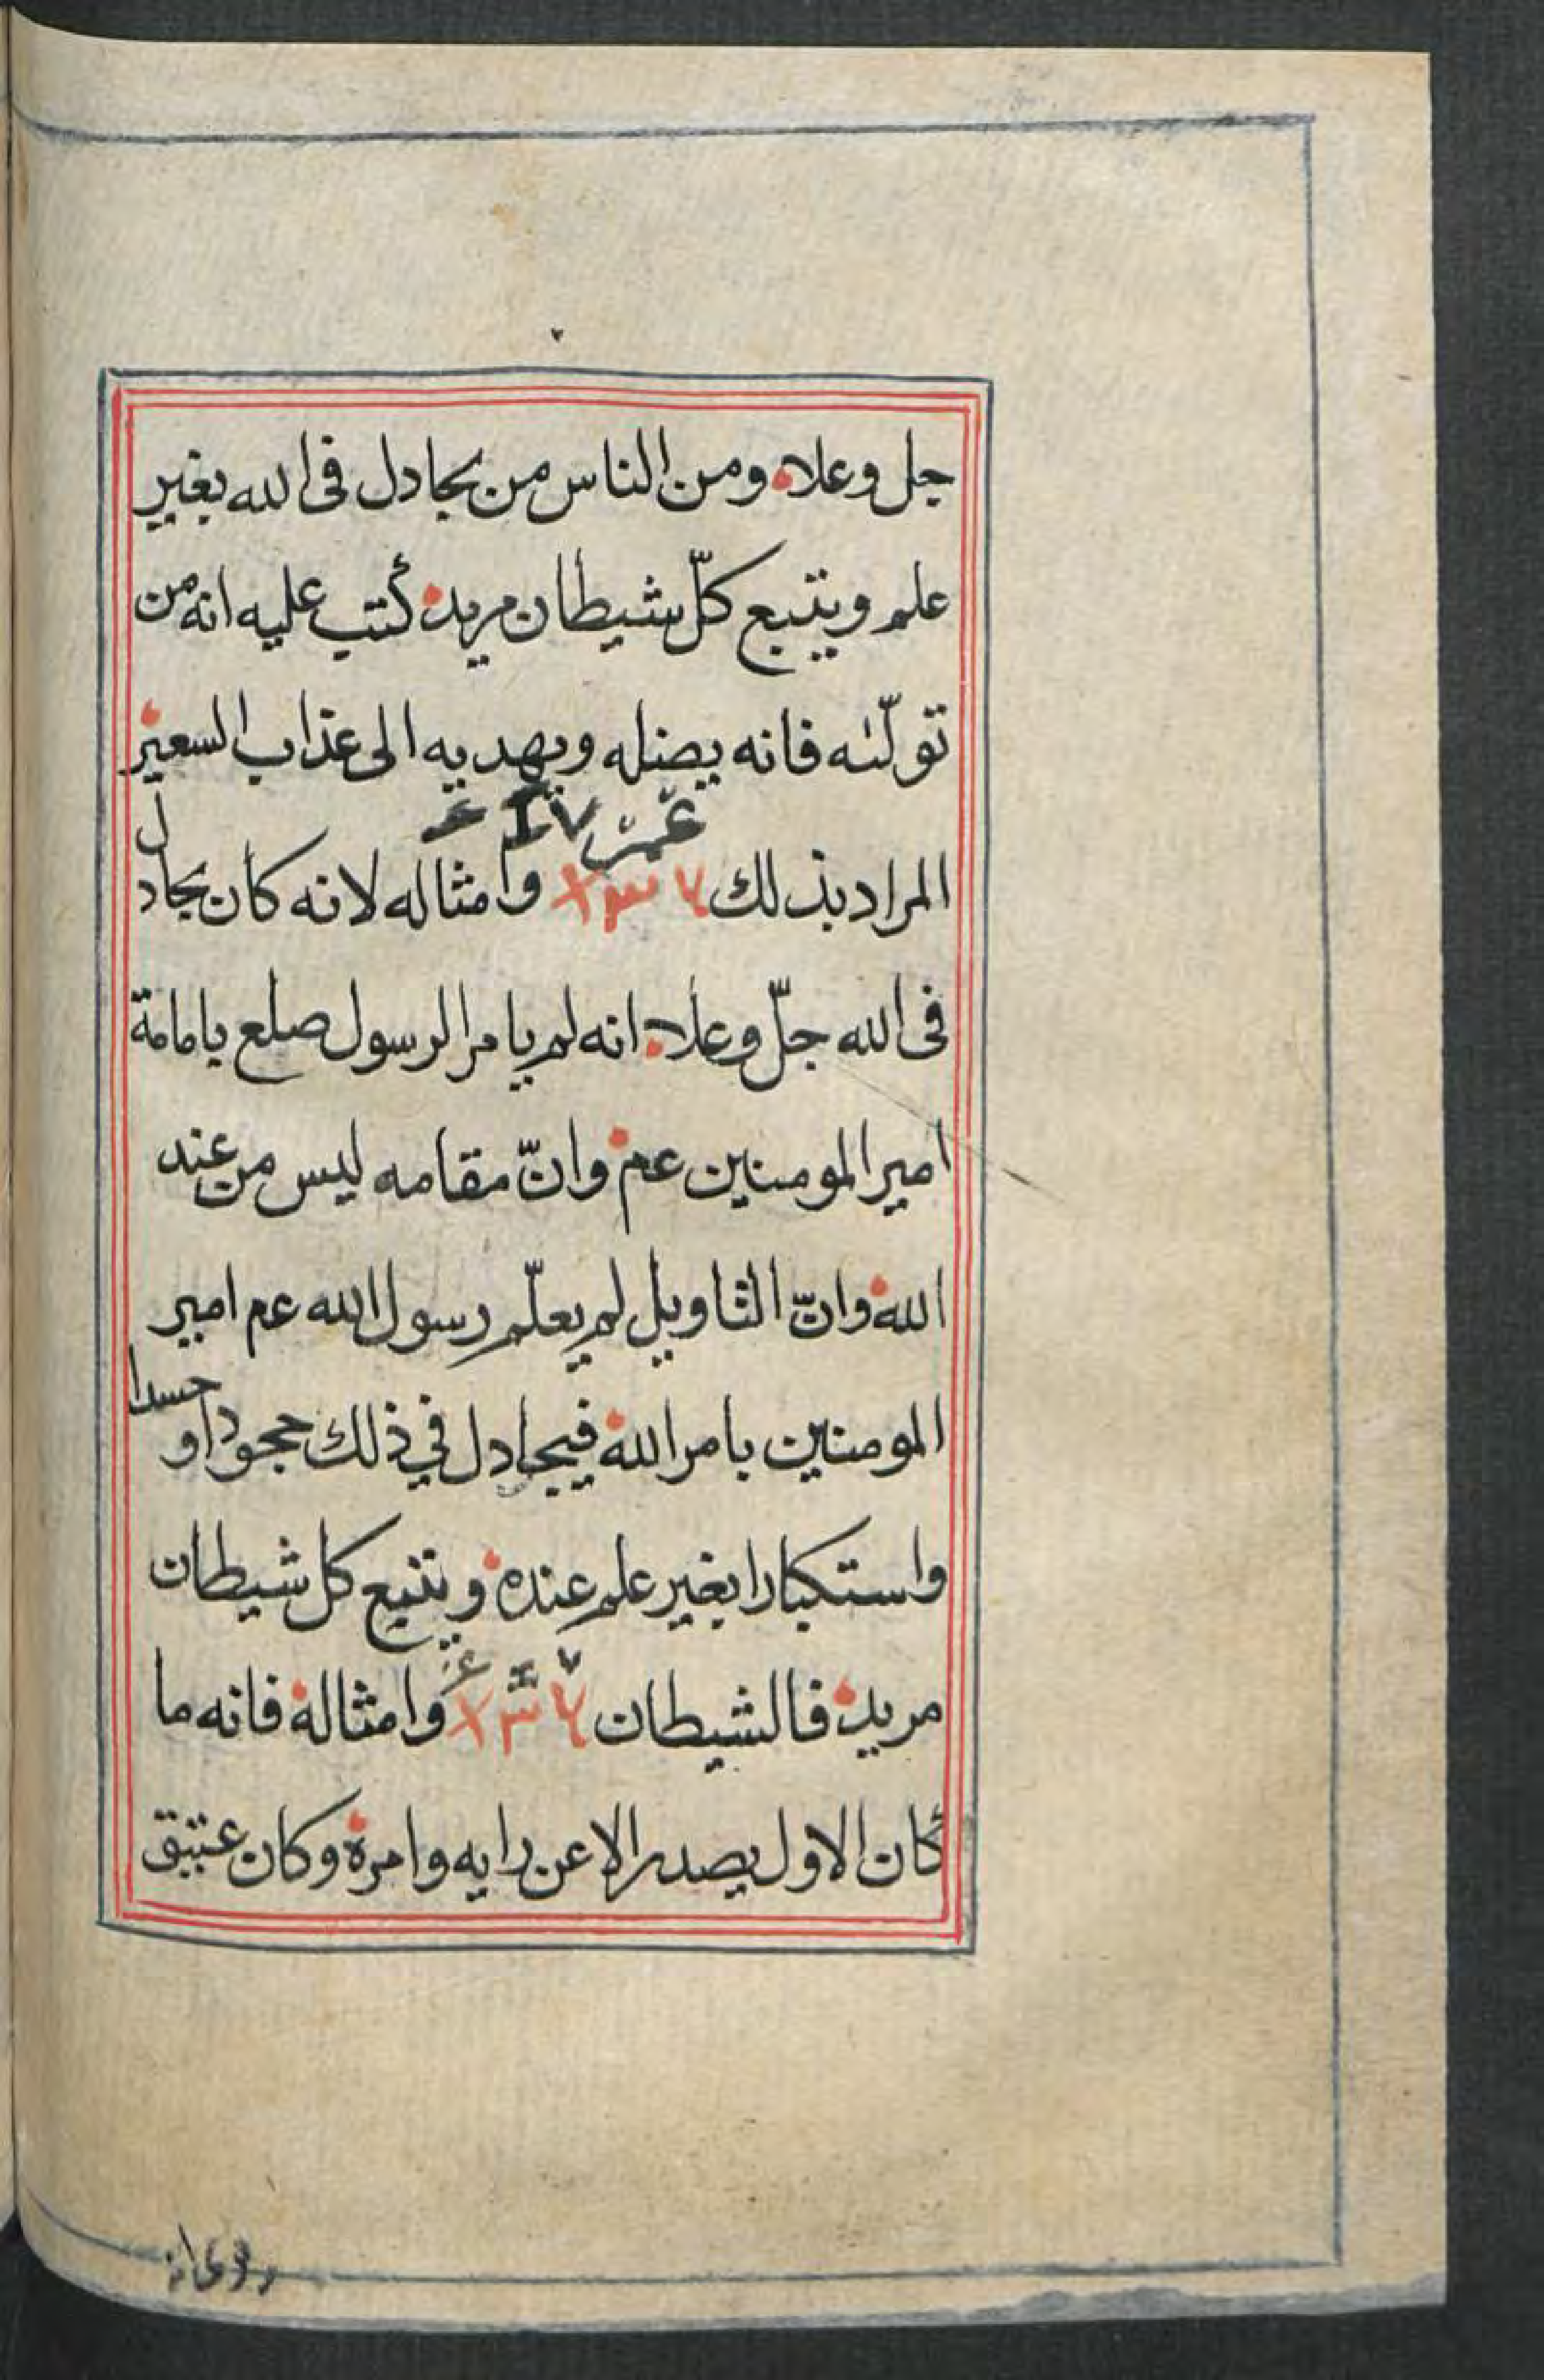 جل وعلا ومن الناس من يجادل فى الله بغير
علم ويتبع كلّ شيطان مريد كتب عليه انه من
تولّاه فانه يضله ويهديه الى عذاب السعير
عمر
المراد بذلك وامثاله لانه كان يجادل
فى الله جلّ وعلا انه لم يامر الرسول صلع بامامة
امير المومنين عم وانّ مقامه ليس من عند
الله وانّ التاويل لم يعلّم رسول الله عم امير
المومنين بامر الله فيجادل في ذلك جحودا و حسدا
واستكبارا بغير علم عنده ويتبع كل شيطان
مريد فالشيطان وامثاله فانه ما
كان الاول يصدر الا عن رايه وامره وكان عتيق